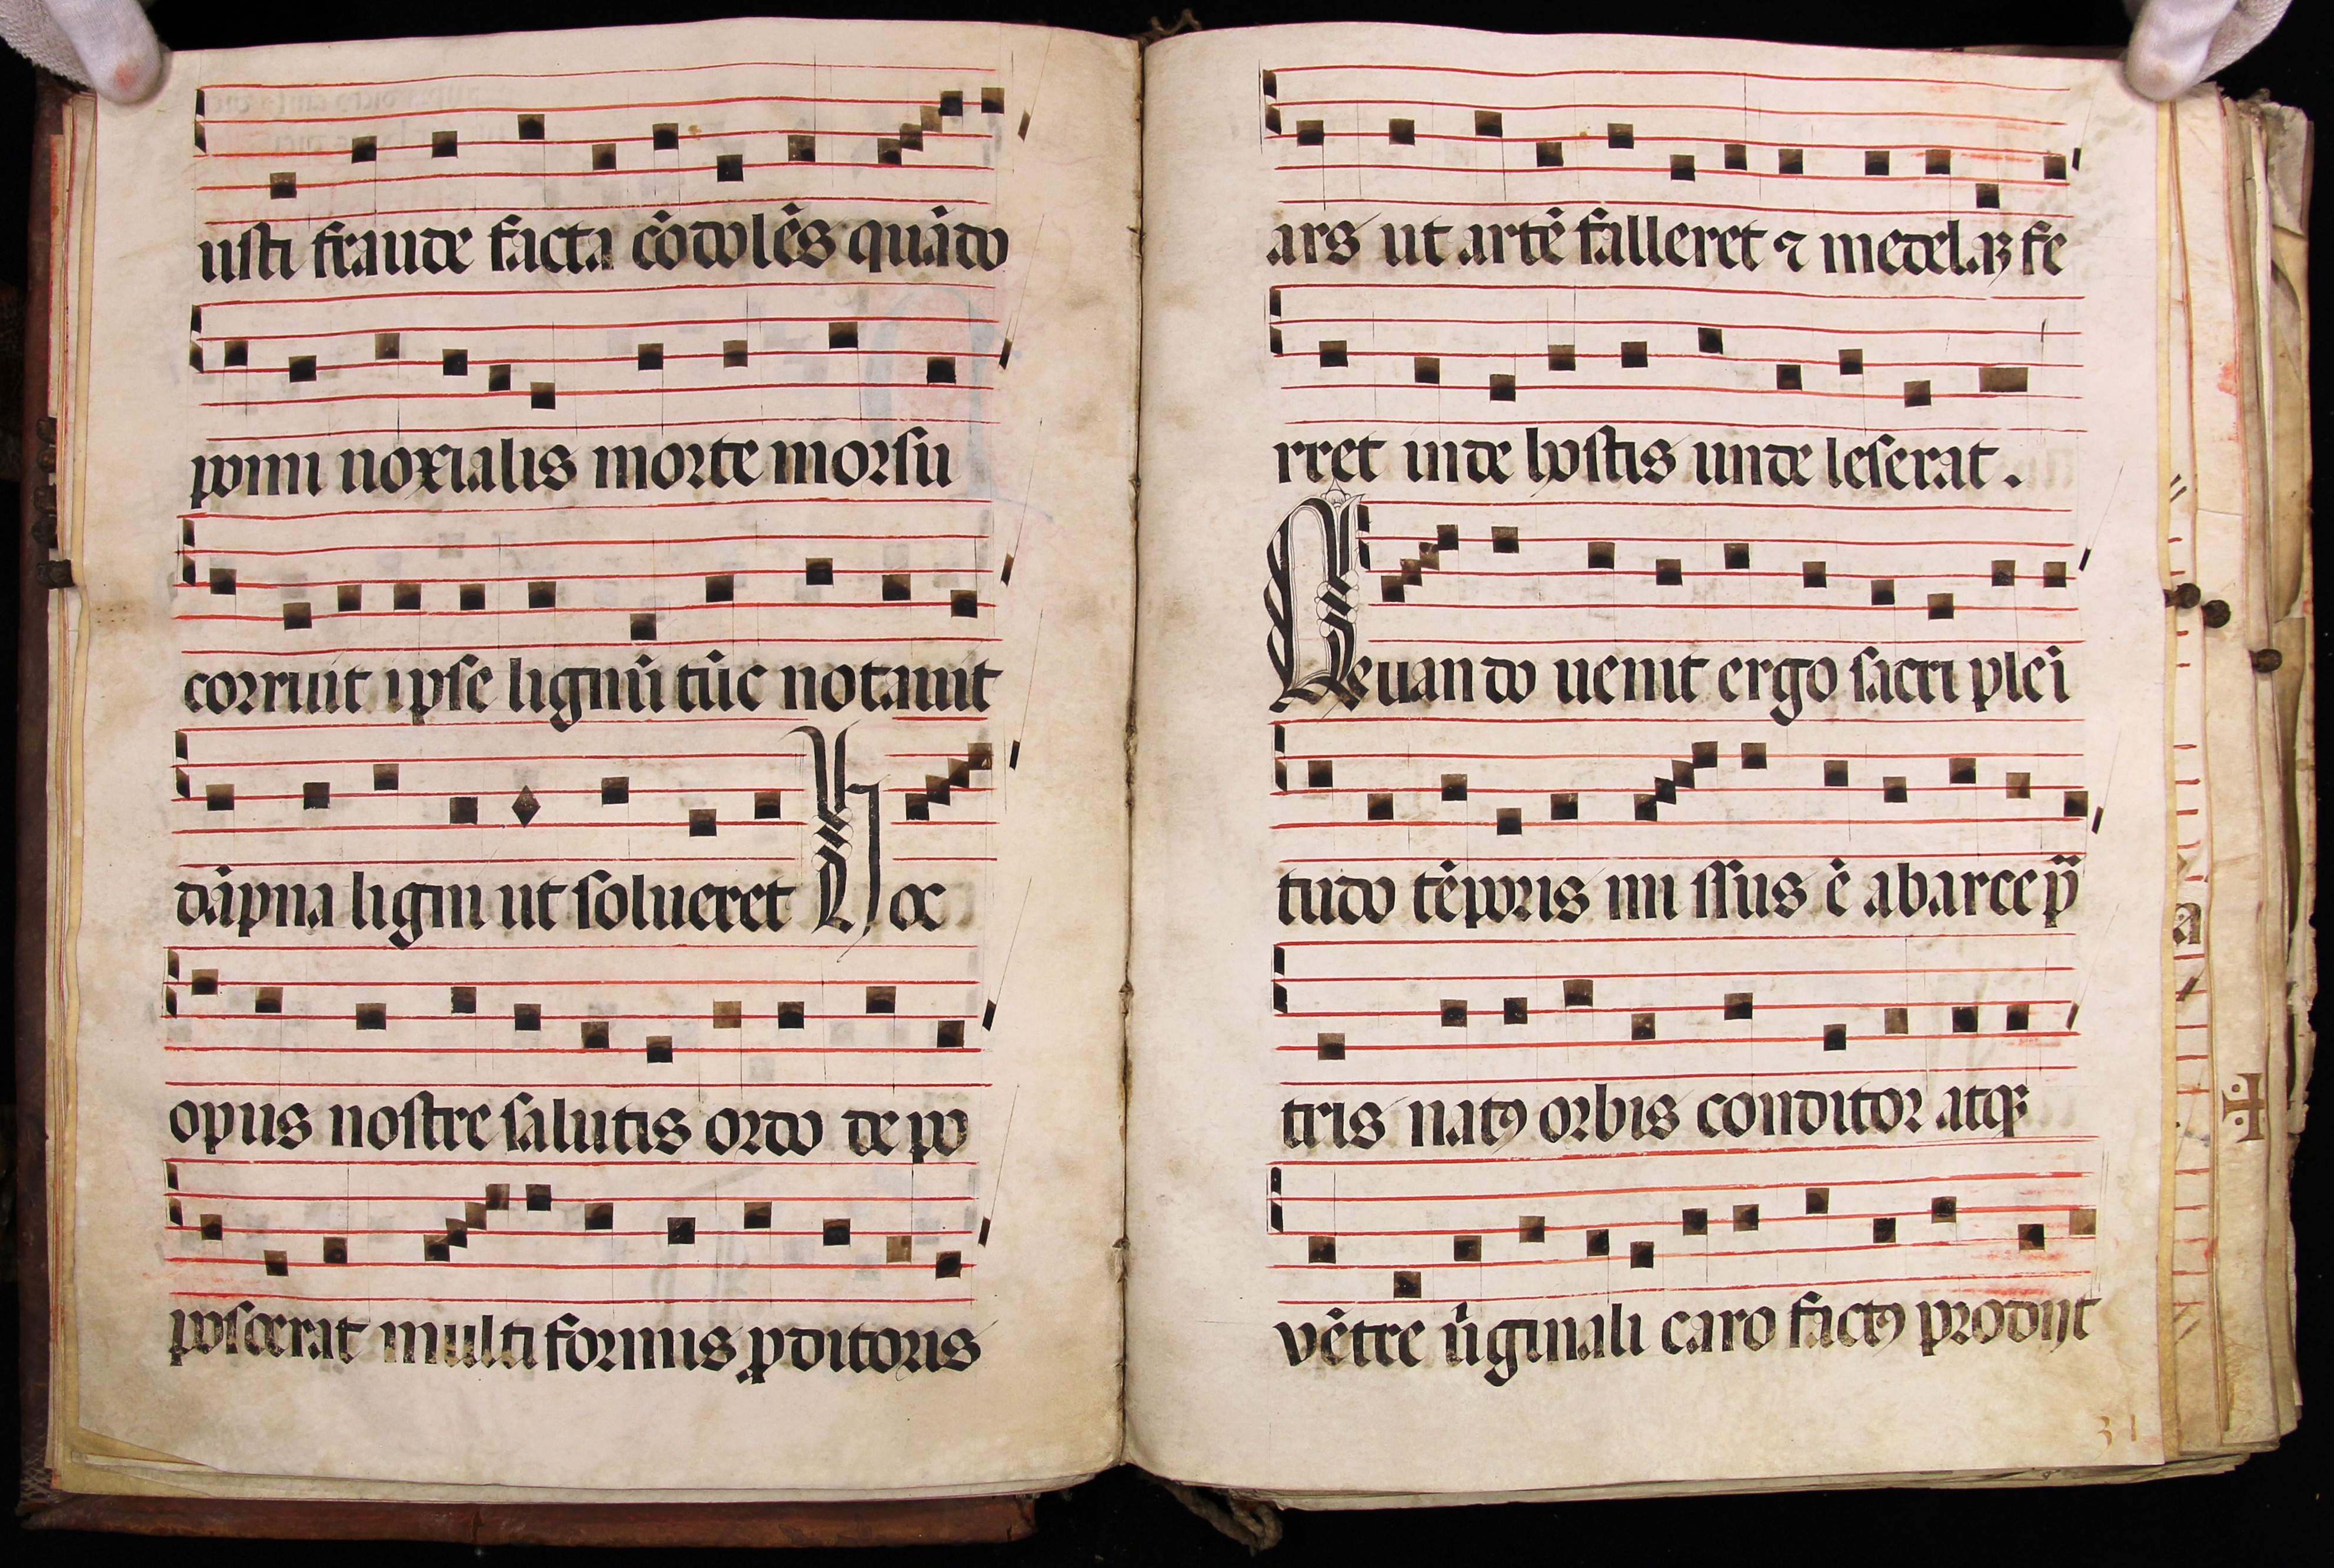 usti fraude facta cōdolēs quādo
pomi noxialis morte morsu
corruit ipse lignū tūc notauit
dāpna ligni ut solueret Hoc
opus nostre salutis ordo depo
poscerat multi formis ꝓditoris
ars ut artē falleret ⁊ medelaꝫ fe
rret inde hostis unde leserat.
Qeuando uenit ergo sacri pleī
tudo tēporis mi ssus ē abarce p̄
tris natꝰ orbis conditor atqꝫ
vētre ūginali caro factꝰ prodijt
31